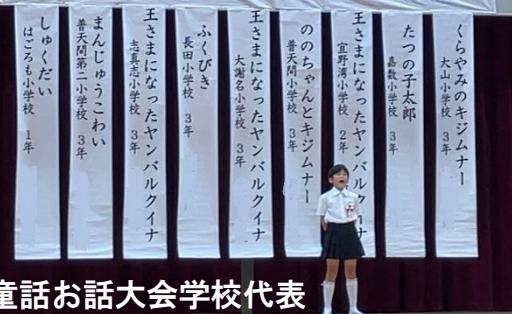 くらやみのキジムナー
大山小学校 3年
たつの子太郎
嘉数小学校 3年
王さまになったヤンバルクイナ
宜野湾小学校 2年
ののちゃんとキジムナー
普天間小学校 3年
王さまになったヤンバルクイナ
大謝名小学校 3年
ふくびき
長田小学校 3年
王さまになったヤンバルクイナ
志真志小学校 3年
まんじゅうこわい
普天間第二小学校 3年
しゅくだい
はごろも小学校 1年
童話お話大会学校代表